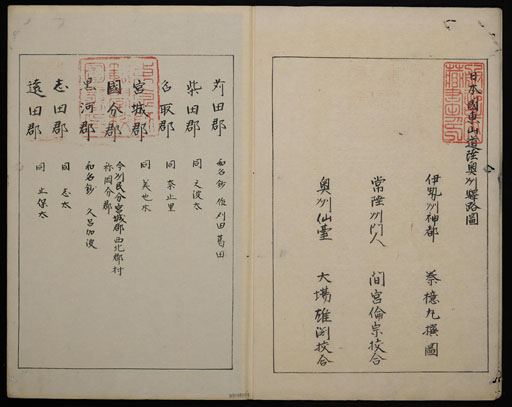 日本國東山道陸奥州驛路圖
伊勢州神都 蔡檍丸撰圖
常陸州門人 間宮倫宗挍合
奥州仙臺 大場雄渕挍合
苅田郡 和名鈔作刈田葛田
柴田郡 同 之波太
名取郡 同 奈止里
宮城郡 同 美也木
國分郡 今州民分宮城郡西北郡村
称国分郡
黒河郡 和名鈔 久呂加波
志田郡 同 志太
遠田郡 同 止保太